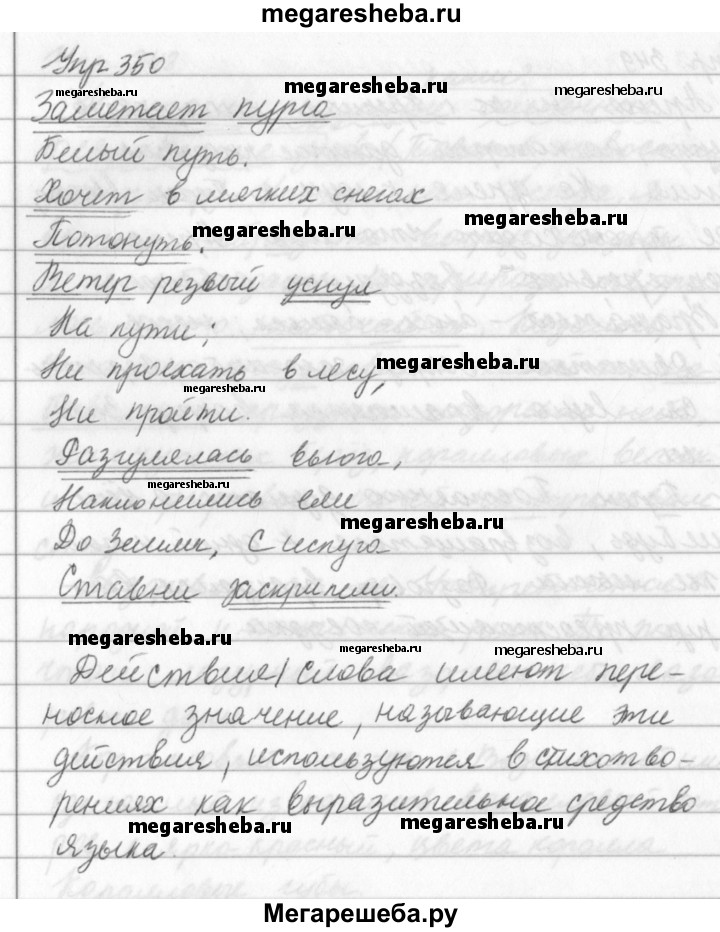 megaresheba.ru
Упр 350
megaresheba.ru
megaresheba.ru
megaresheba.ru
Заметает пурга
Белый путь.
Хочет в мягких снегах
megaresheba.ru
megaresheba.ru
Потонуть.
Ветер резвый уснул
На пути;
Ни проехать в лесу,
megaresheba.ru
megaresheba.ru
Ни пройти.
Разгулялась вьюга,
megaresheba.ru
Наклонились ели
megaresheba.ru
До земли, С испуга
Ставни заскрипели.
megaresheba.ru
megaresheba.ru
megaresheba.ru
Действия/слова имеют пере-
носное значение, называющие эти
действия, используются в стихотво-
рениях как выразительное средство
megaresheba.ru
megaresheba.ru
языка.
Мегарешеба.ру